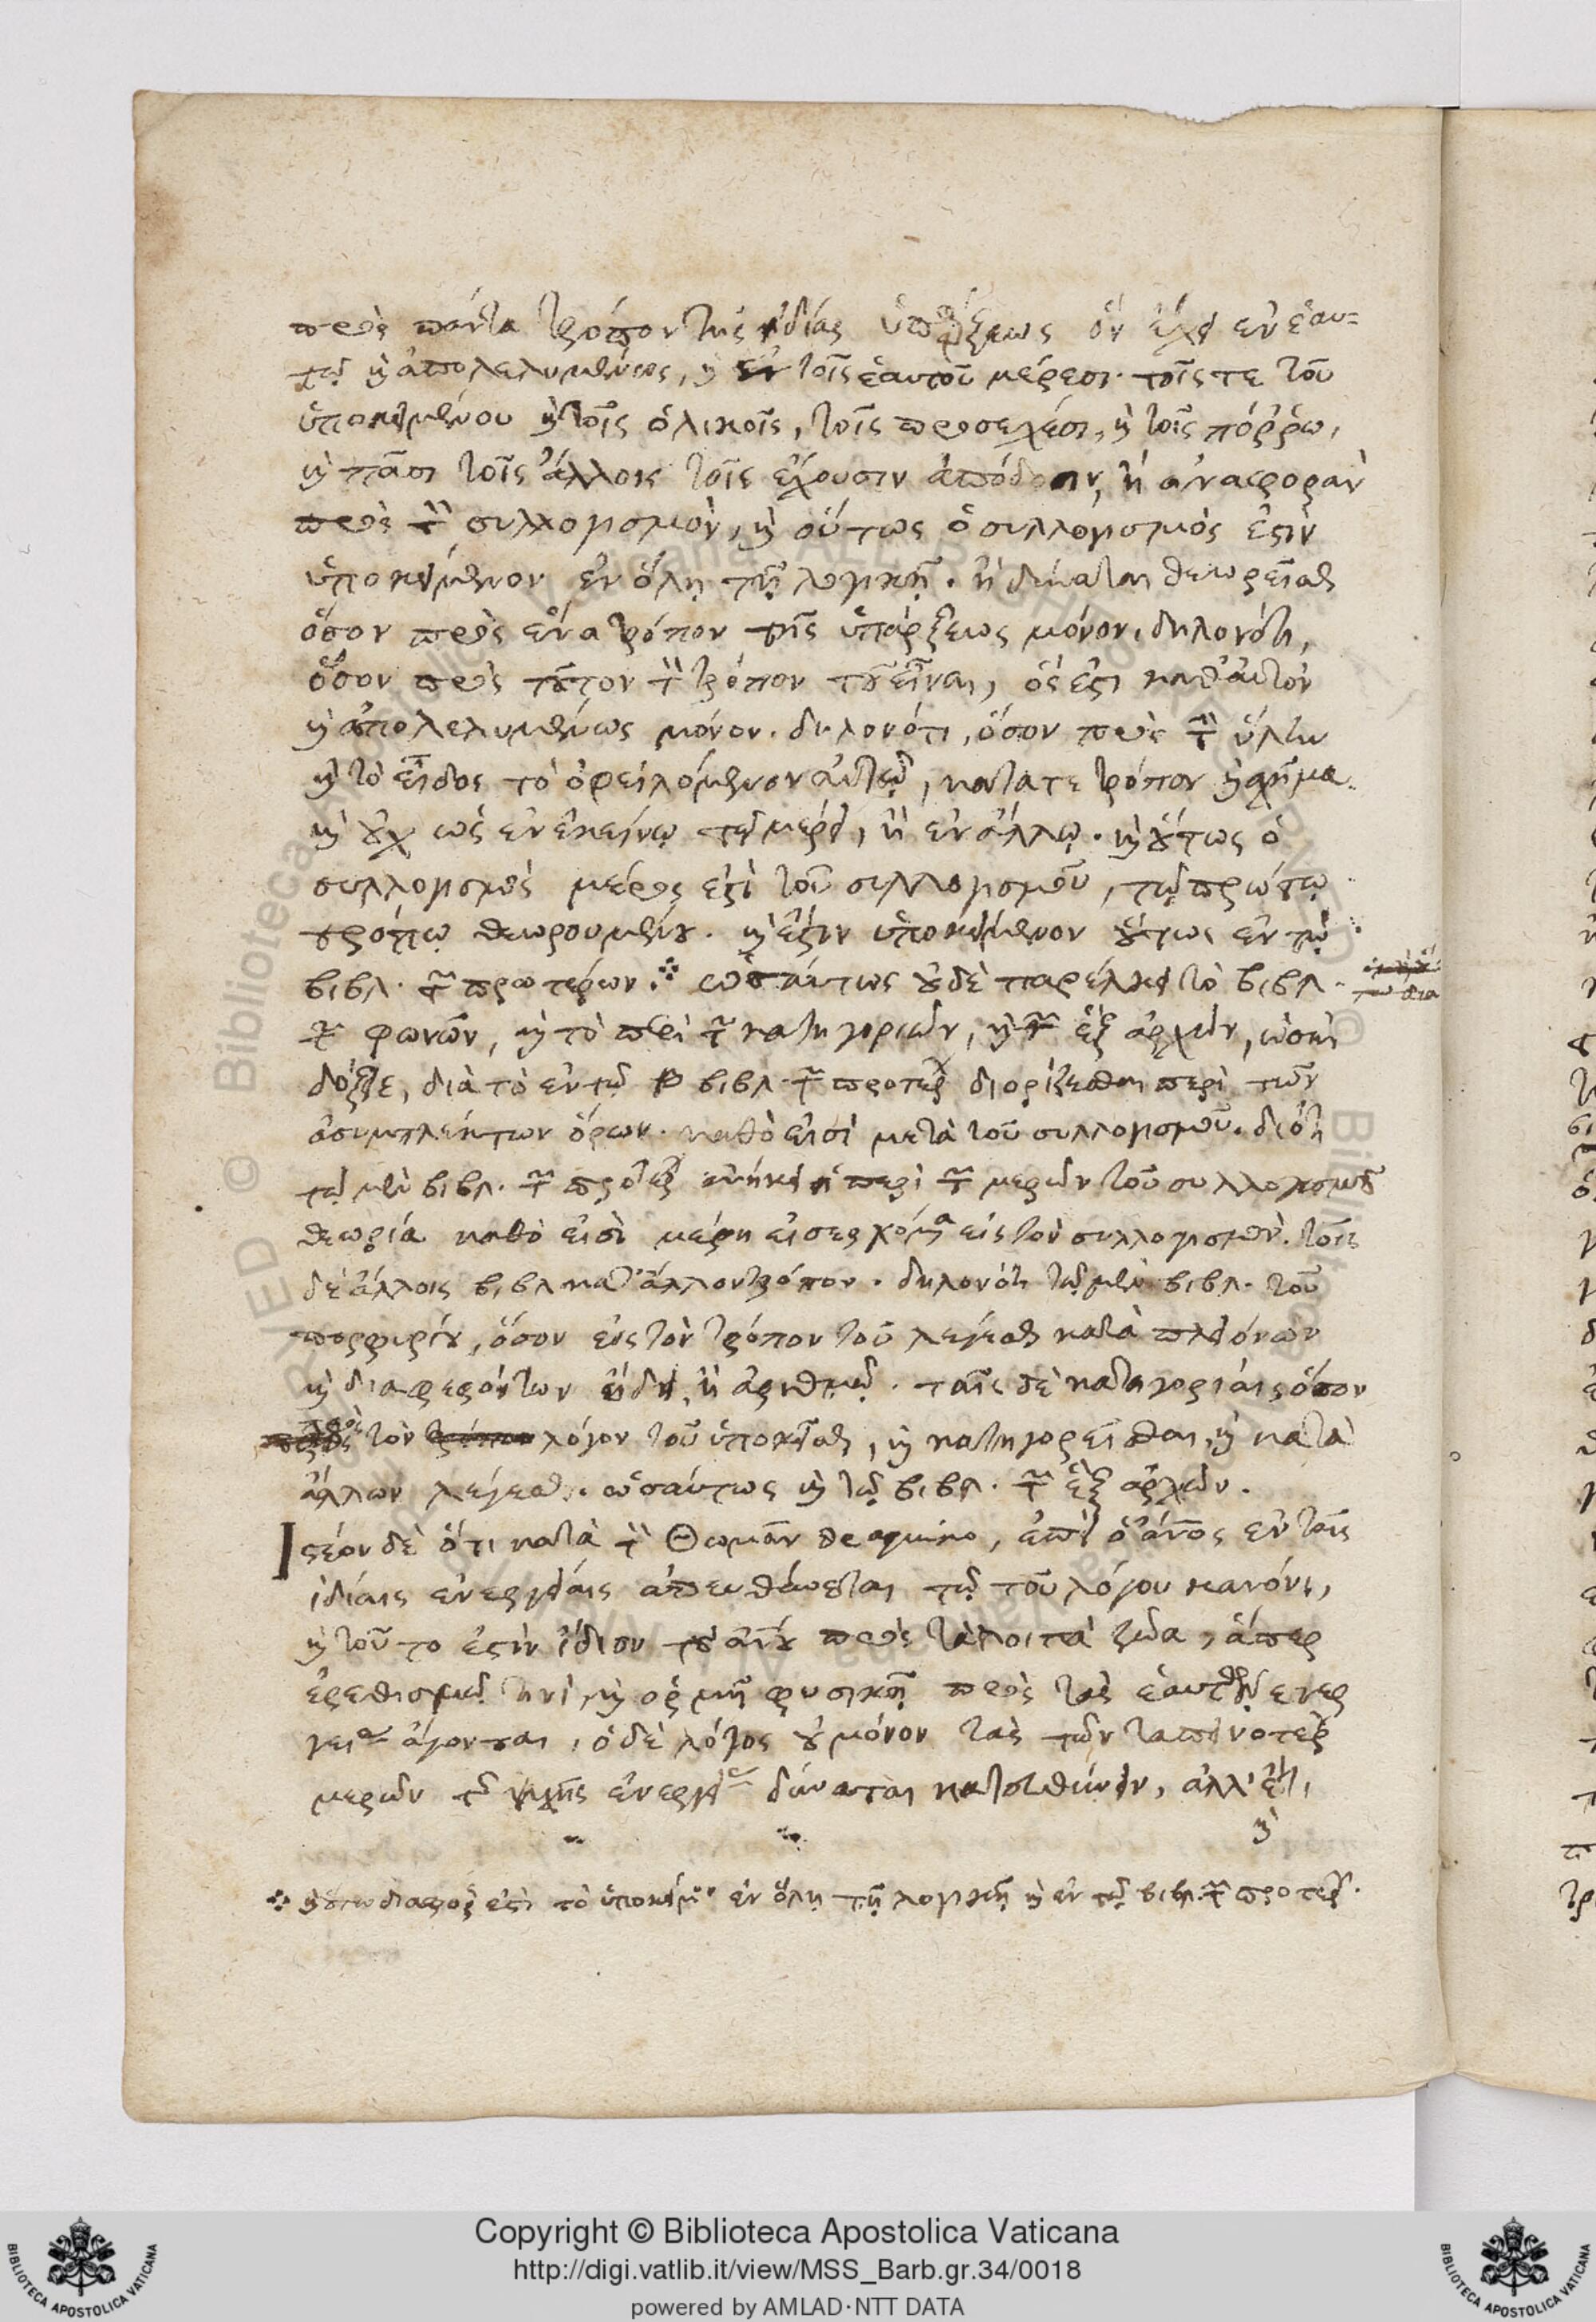 πρὸς πάντα τρόπον τῆς ἰδίας ὑπάρξεως ὃν ἔχει ἐν ἑαυ=
τῷ καὶ ἀπολελυμένως, καὶ ἐν τοῖς ἑαυτοῦ μέρεσι. τοῖς τε τοῦ
ὑποκειμένου καὶ τοῖς ὁλικοῖς, τοῖς προσεχέσι, καὶ τοῖς πόῤῥω,
καὶ πᾶσι τοῖς ἄλλοις τοῖς ἔχουσιν ἀπόδοσιν, ἢ ἀναφορὰν
πρὸς τὸν συλλογισμὸν, καὶ οὕτως ὁ συλλογισμὸς ἐστὶν
ὑποκείμενον ἐν ὅλῃ τῇ λογικῇ. ἢ δύναται θεωρεῖσθαι
ὅσον πρὸς ἕνα τρόπον τῆς ὑπάρξεως μόνον, δηλονότι,
ὅσον πρὸς τοῦτον τὸν τρόπον τοῦ εἶναι, ὅς ἐστι καθ' αὑτὸν
καὶ ἀπολελυμένως μόνον. δηλονότι, ὅσον πρὸς τὴν ὕλην
καὶ τὸ εἶδος τὸ ὀφειλόμενον αὐτῷ, κατά τε τρόπον καὶ σχῆμα.
καὶ οὐχ ὡς ἐν ἐκείνῳ τῷ μέρει, ἢ ἐν ἄλλῳ. καὶ οὕτως ὁ
συλλογισμὸς μέρος ἐστὶ τοῦ συλλογισμοῦ, τῷ πρώτῳ
τρόπῳ θεωρουμένου. καὶ ἔστιν ὑποκείμενον οὕτως ἐν τῷ
βιβλ. τῶν προτέρων. ὡσαύτως οὐδὲ παρέλκει τὸ βιβλ.
τῶν φωνῶν, καὶ τὸ περὶ τῶν κατηγοριῶν, καὶ τῶν ἓξ ἀρχῶν,
δόξειε, διὰ τὸ ἐν τῷ βιβλ. τῶν προτέρων διορίζεσθαι περὶ τῶν
ἀσυμπλέκτων ὅρων. καθὸ εἰσὶ μετὰ τοῦ συλλογισμοῦ. διότι
τῷ μὲν βιβλ. τῶν προτέρων ἀνήκει ἡ περὶ τῶν μερῶν τοῦ συλλογισμοῦ
θεωρία καθὸ εἰσὶ μέρη εἰσερχόμενα εἰς τὸν συλλογισμὸν. τοῖς
δὲ ἄλλοις βιβλ κατ' ἄλλον τρόπον. δηλονότι τῷ μὲν βιβλ. τοῦ
πορφυρίου, ὅσον εἰς τὸν τρόπον τοῦ λέγεσθαι κατὰ πλειόνων
καὶ διαφερόντων εἴδει, ἢ ἀριθμῷ. ταῖς δὲ κατηγορίαις ὅσον
πρὸς τὸν λόγον τοῦ ὑποκεῖσθαι, καὶ κατηγορεῖσθαι, καὶ κατὰ
ἄλλων λέγεσθαι. ὡσαύτως καὶ τῷ βιβλ. τῶν ἓξ ἀρχῶν.
Ἰστέον δὲ ὅτι κατὰ τὸν Θωμᾶν de aquino, ἐπεὶ ὁ ἄνθρωπος ἐν ταῖς
ἰδίαις ἐνεργείαις ἀπευθύνεται τῷ τοῦ λόγου κανόνι,
καὶ τοῦτο ἐστὶν ἴδιον τοῦ ἀνθρώπου πρὸς τὰ λοιπὰ ζῶα, ἅπερ
ἐρεθισμῷ τινὶ, καὶ ὁρμῇ φυσικῇ πρὸς τὰς ἑαυτῶν ἐνερ
γείας ἄγονται, ὁ δὲ λόγος οὐ μόνον τὰς τῶν ταπεινοτέρων
μερῶν τῆς ψυχῆς ἐνεργείας δύναται κατευθύνειν, ἀλλ' ἔτι,
καὶ
καὶ οὕτω διαφόρως ἐστὶ τὸ ὑποκείμενον ἐν ὅλῃ τῇ λογικῇ καὶ ἐν τῷ βιβλ. τῶν προτέρων.
Copyright © Biblioteca Apostolica Vaticana
http://digi.vatlib.it/view/MSS_Barb.gr.34/0018
powered by AMLAD·NTT DATA